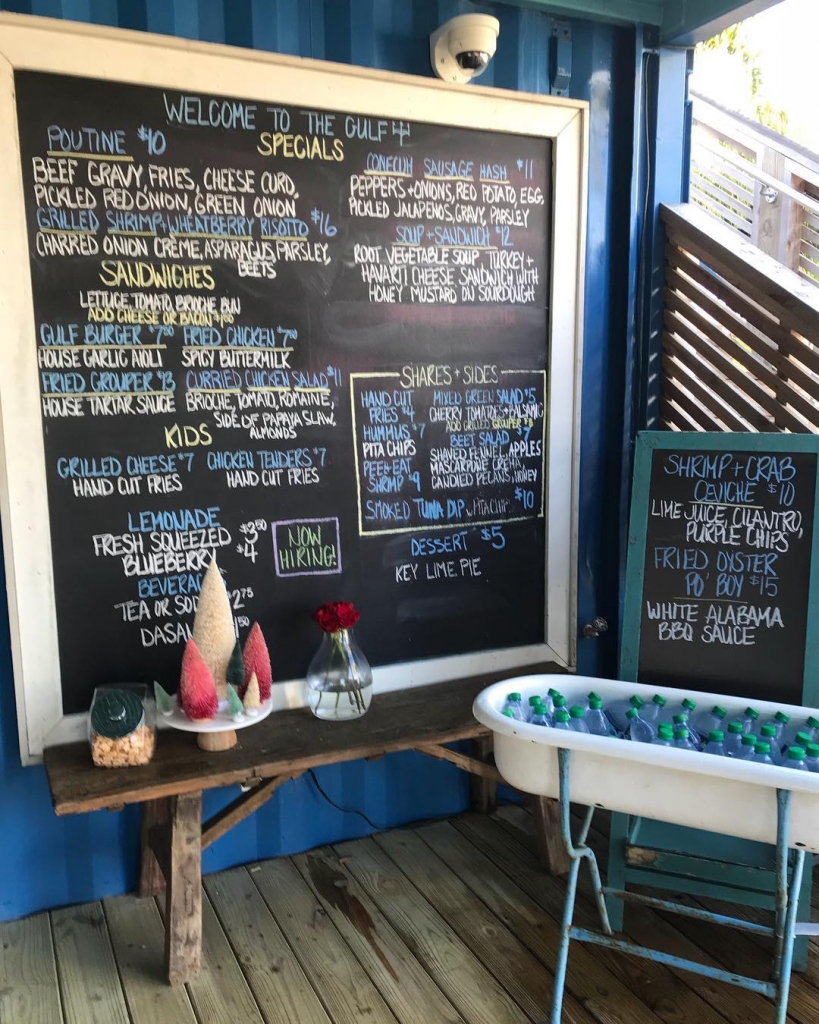 WELCOME TO THE GULF
SPECIALS
POUTINE $10
BEEF GRAVY, FRIES, CHEESE CURD,
PICKLED RED ONION, GREEN ONION
GRILLED SHRIMP + WHEATBERRY RISOTTO $16
CHARRED ONION CRÈME, ASPARAGUS, PARSLEY,
BEETS
CONECUH SAUSAGE HASH $11
PEPPERS + ONIONS, RED POTATO, EGG,
PICKLED JALAPEÑOS, GRAVY, PARSLEY
SOUP + SANDWICH $12
ROOT VEGETABLE SOUP, TURKEY +
HAVARTI CHEESE SANDWICH WITH
HONEY MUSTARD ON SOURDOUGH
SANDWICHES
LETTUCE, TOMATO, BRIOCHE BUN
ADD CHEESE OR BACON
GULF BURGER $7 FRIED CHICKEN $7
HOUSE GARLIC AIOLI SPICY BUTTERMILK
FRIED GROUPER $13 CURRIED CHICKEN SALAD $11
HOUSE TARTAR SAUCE BRIOCHE, TOMATO, ROMAINE,
SIDE OF PAPAYA SLAW,
ALMONDS
KIDS
GRILLED CHEESE $7 CHICKEN TENDERS $7
HAND CUT FRIES HAND CUT FRIES
LEMONADE
FRESH SQUEEZED $3.50
BLUEBERRY $4
BEVERAG
TEA OR SOD 2.75
DASAN .50
NOW
HIRING!
SHARES + SIDES
HAND CUT
FRIES $4
HUMMUS $7
PITA CHIPS
PEEL + EAT
SHRIMP $9
MIXED GREEN SALAD $5
CHERRY TOMATOES + BALSAMIC
ADD GRILLED GROUPER $8
BEET SALAD $7
SHAVED FENNEL, APPLES
MASCARPONE CREMA,
CANDIED PECANS, HONEY
SMOKED TUNA DIP W/PITA CHIP $10
DESSERT $5
KEY LIME PIE
SHRIMP + CRAB
CEVICHE $10
LIME JUICE, CILANTRO,
PURPLE CHIPS
FRIED OYSTER
PO' BOY $15
WHITE ALABAMA
BBQ SAUCE